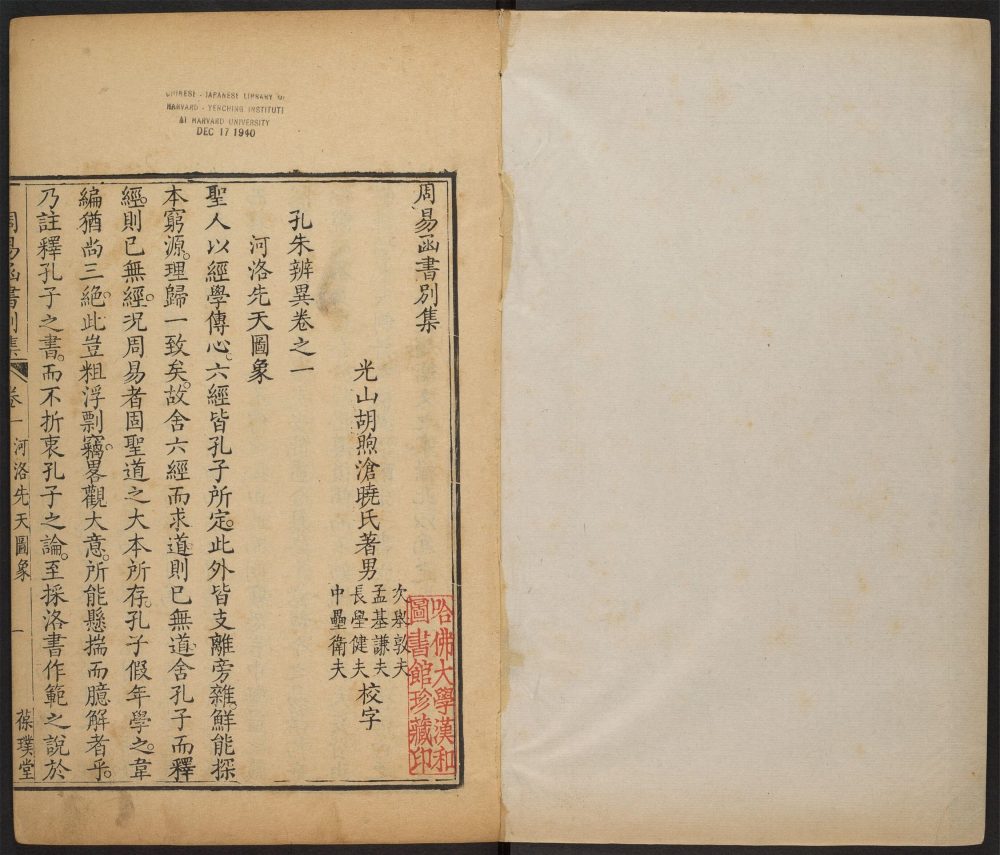 CHINESE - JAPANESE LIBRARY OF
HARVARD - YENCHING INSTITUTE
AT HARVARD UNIVERSITY
DEC 17 1940
周易函書別集
光山胡煦滄曉氏著男
次舉敦夫
孟基謙夫
長壆健夫
中壘衛夫
校字
哈佛大學漢和
圖書館珍藏印
孔朱辨異卷之一
河洛先天圖象
聖人以經學傳心。六經皆孔子所定。此外皆支離旁雜。鮮能探
本窮源。理歸一致矣。故舍六經而求道。則已無道。舍孔子而釋
經。則已無經。况周易者固聖道之大本所存。孔子假年學之。韋
編猶尚三絕。此豈粗浮剽竊。畧觀大意。所能懸揣而臆解者乎。
乃註釋孔子之書。而不折衷孔子之論。至採洛書作範之說於
周易函書別集 卷一 河洛先天圖象 一 葆璞堂